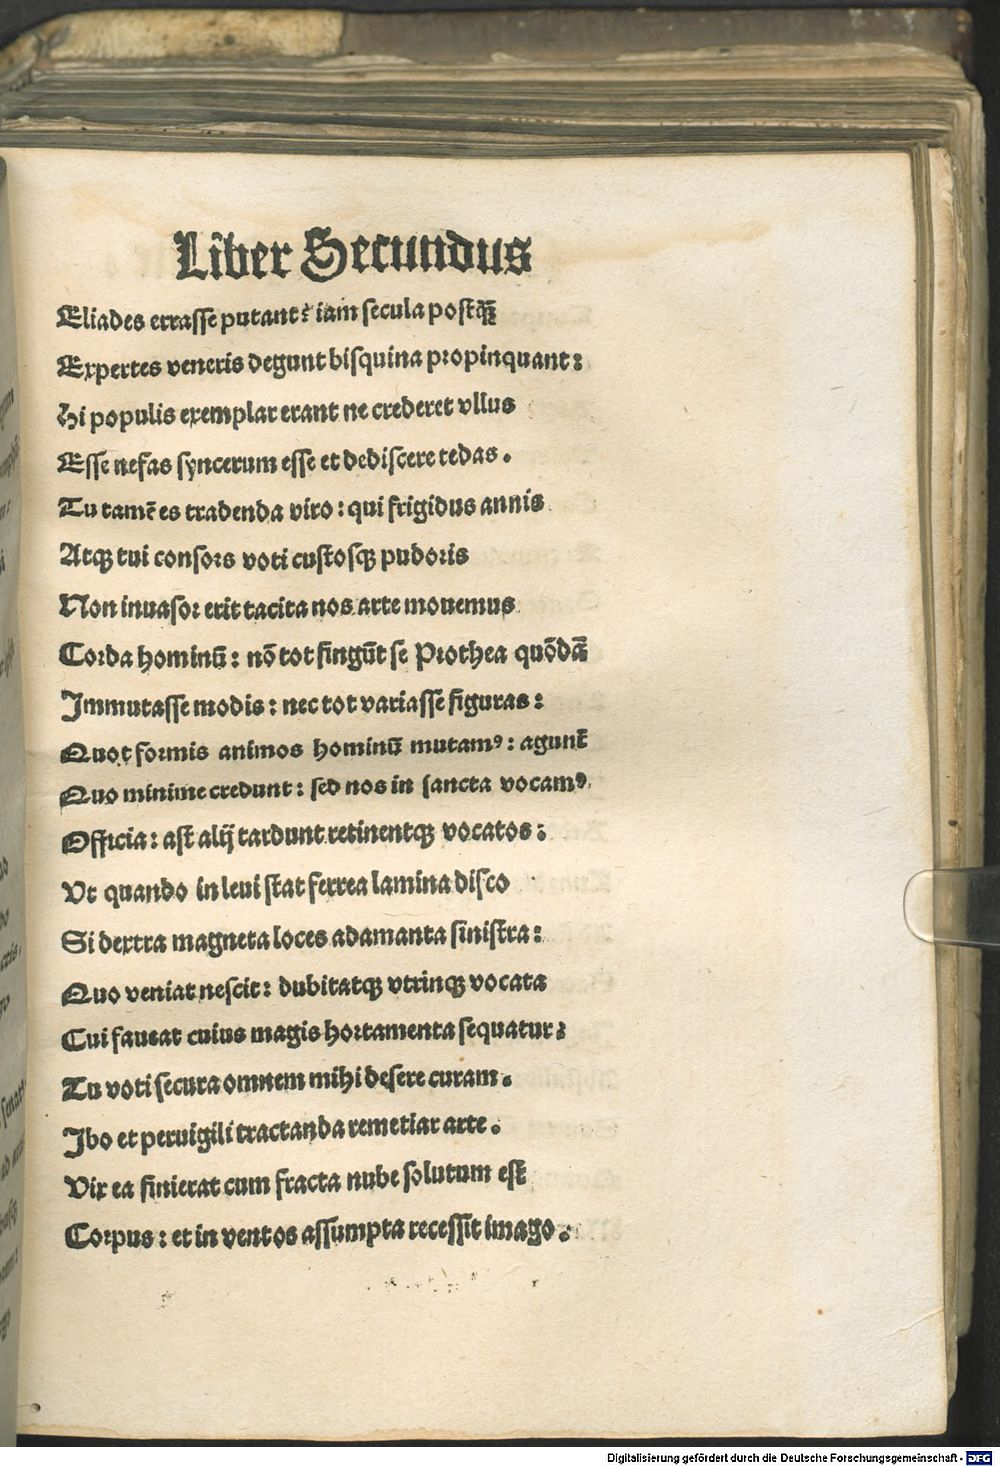 Liber Secundus
Eliades errasse putant: iam secula postꝙ̃
Expertes veneris degunt bisquina propinquant:
Hi populis exemplar erant ne crederet vllus
Esse nefas syncerum esse et dediscere tedas.
Tu tamē es tradenda viro: qui frigidus annis
Atqꝫ tui consors voti custosqꝫ pudoris
Non inuasor erit tacita nos arte mouemus
Corda hominū: nō tot fingūt se Prothea quōdā
Immutasse modis: nec tot variasse figuras:
Quot formis animos hominū mutamꝰ: agunt̄
Quo minime credunt: sed nos in sancta vocamꝰ
Officia: ast alij tardunt retinentqꝫ vocatos:
Vt quando in leui stat ferrea lamina disco
Si dextra magneta loces adamanta sinistra:
Quo veniat nescit: dubitatqꝫ vtrinqꝫ vocata
Cui faueat cuius magis hortamenta sequatur:
Tu voti secura omnem mihi desere curam.
Ibo et peruigili tractanda remetiar arte.
Vix ea finierat cum fracta nube solutum est
Corpus: et in ventos assumpta recessit imago.
Digitalisierung gefördert durch die Deutsche Forschungsgemeinschaft - DFG